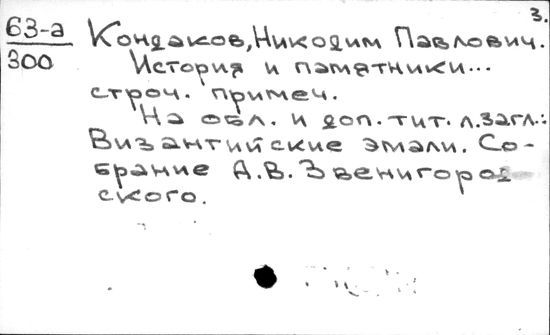 3.
63-а
300
Кондаков, Никодим Павлович.
История и памятники...
строч. примеч.
На обл. и доп. тит. л. загл.:
Византийские эмали. Со-
брание А.В. Звенигород
ского.